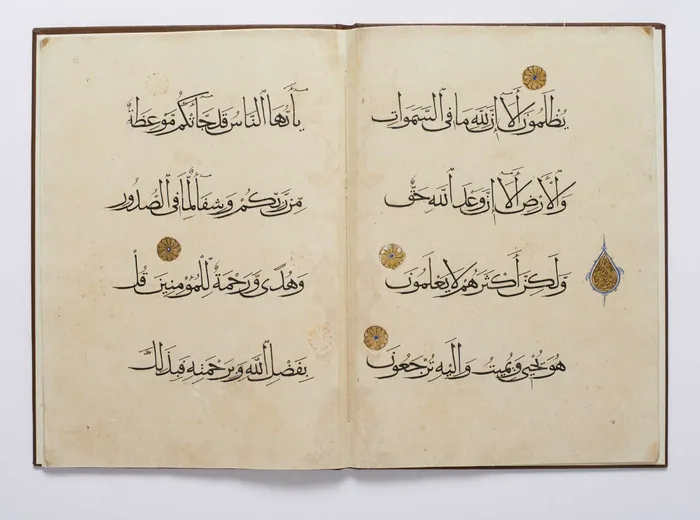 يُظْلَمُونَ أَلَا إِنَّ لِلَّهِ مَا فِى السَّمَوَاتِ
وَالْأَرْضِ أَلَا إِنَّ وَعْدَ اللَّهِ حَقٌّ
وَلَكِنَّ أَكْثَرَهُمْ لَا يَعْلَمُونَ
هُوَ يُحْيِى وَيُمِيتُ وَإِلَيْهِ تُرْجَعُونَ
يَا أَيُّهَا النَّاسُ قَدْ جَاءَتْكُمْ مَوْعِظَةٌ
مِنْ رَبِّكُمْ وَشِفَاءٌ لِمَا فِى الصُّدُورِ
وَهُدًى وَرَحْمَةٌ لِلْمُؤْمِنِينَ قُلْ
بِفَضْلِ اللَّهِ وَبِرَحْمَتِهِ فَبِذَلِكَ